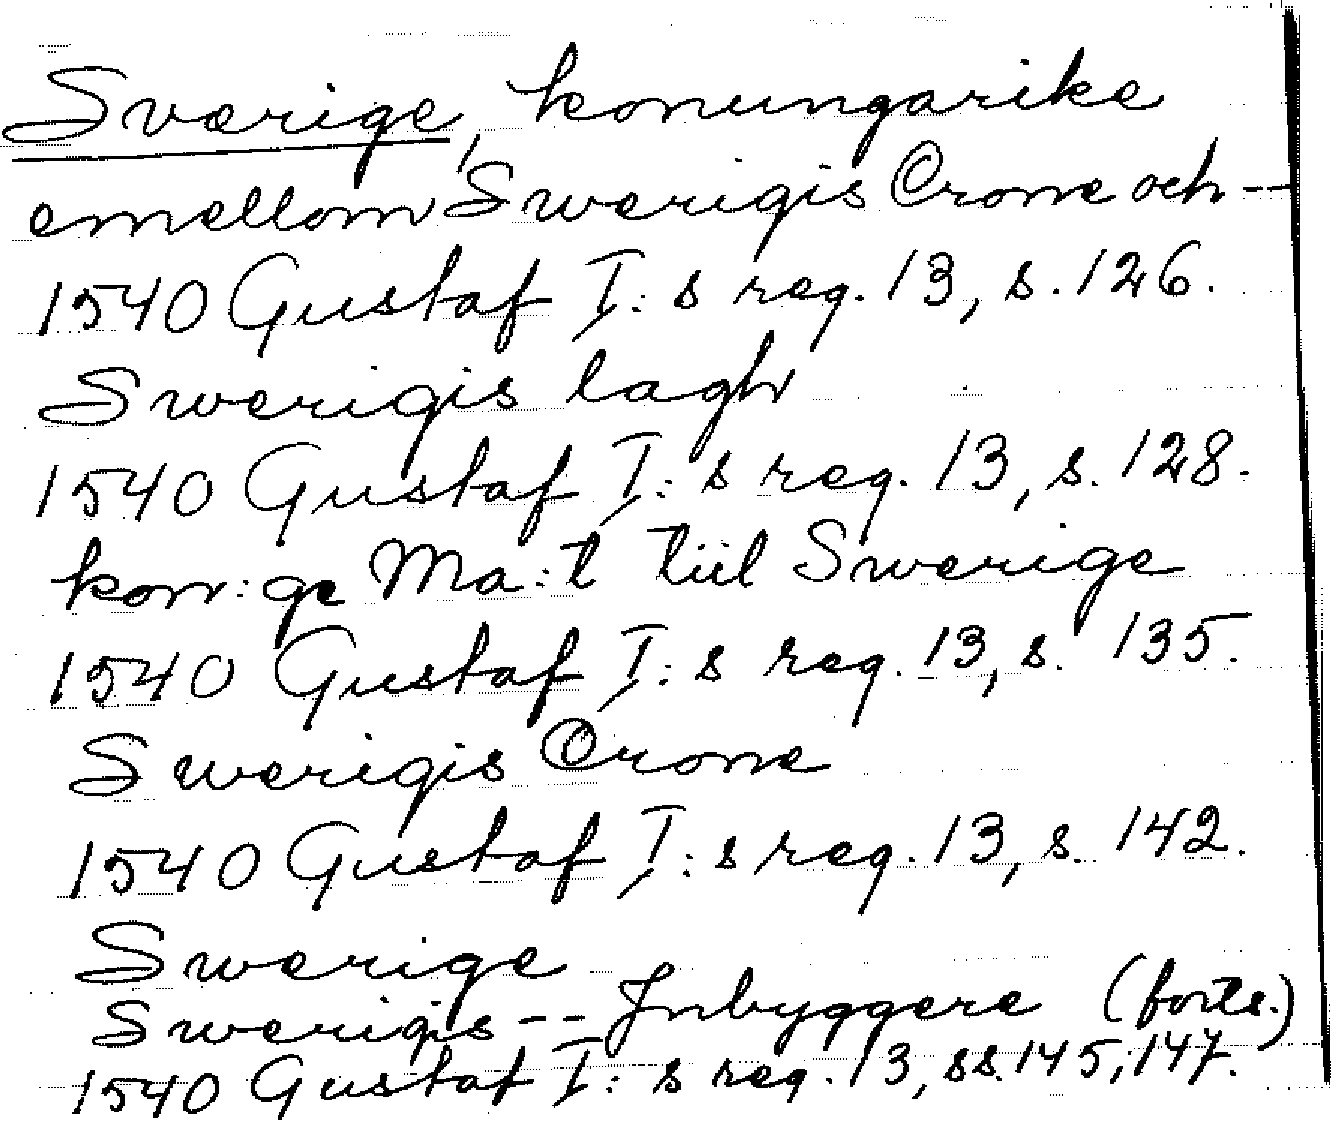 Sverige, konungarike
emellom Swerigis Crone och --
1540 Gustaf I:s reg. 13, s. 126.
Swerigis lagh
1540 Gustaf I:s reg. 13, s. 128.
kon:ge Ma:t tiil Swerige
1540 Gustaf I:s reg. 13, s. 135.
Swerigis Crone
1540 Gustaf I:s reg. 13, s. 142.
Swerige
Swerigis -- Jnbyggere (forts.)
1540 Gustaf I:s reg. 13, ss. 145, 147.